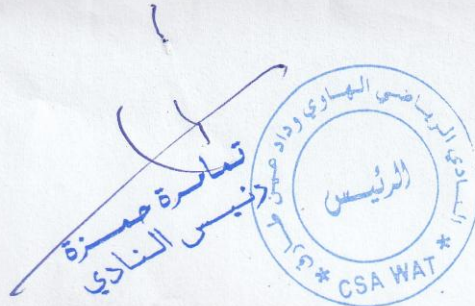 تمامرة حمزة
رئيس النادي
النادي الرياضي الهاوي وداد عين طارق
الرئيس
* CSA WAT *